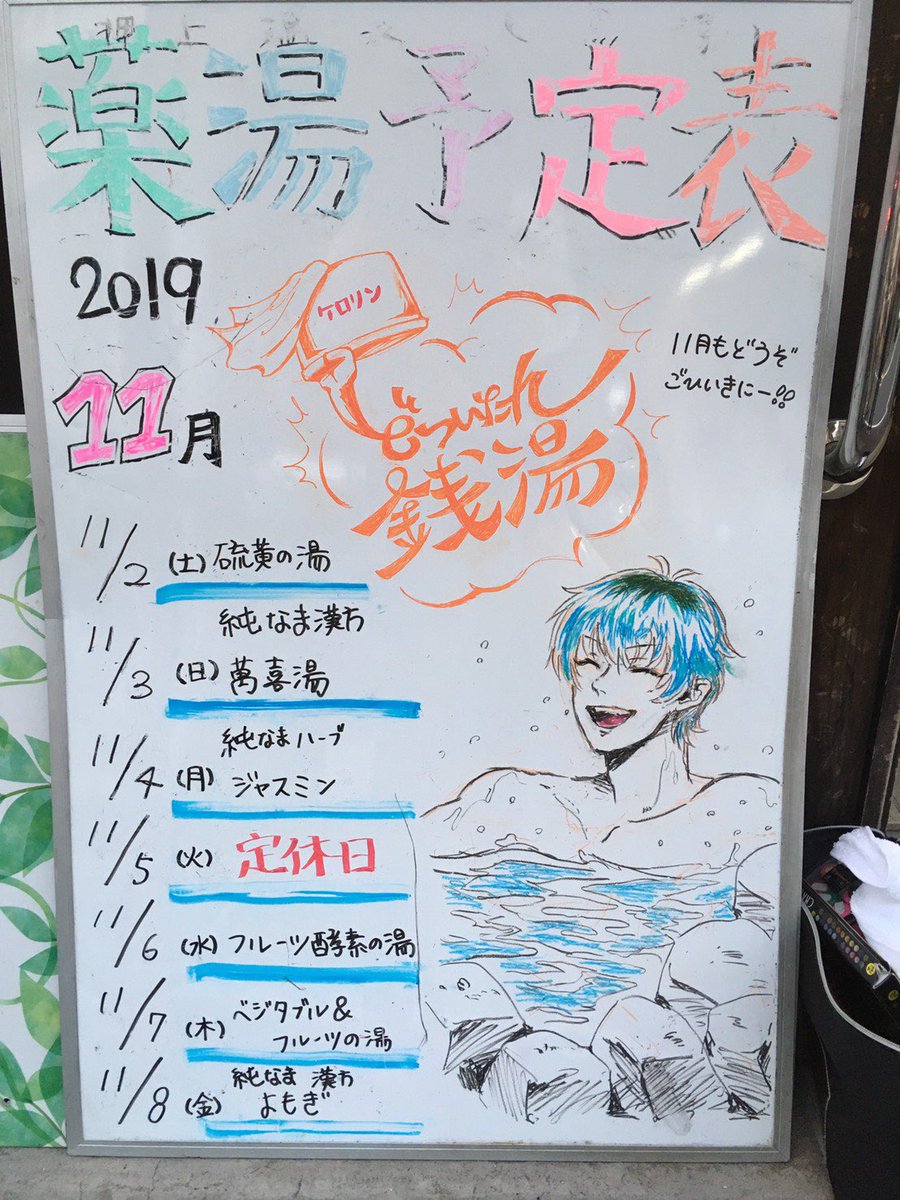 薬湯予定表
2019
11月
ケロリン
どついたれ
銭湯
11月もどうぞ
ごひいきにー!!
11/2 (土) 硫黄の湯
純なま漢方
11/3 (日) 萬喜湯
純なまハーブ
11/4 (月) ジャスミン
11/5 (火) 定休日
11/6 (水) フルーツ酵素の湯
11/7 (木) ベジタブル&
フルーツの湯
純なま 漢方
11/8 (金) よもぎ